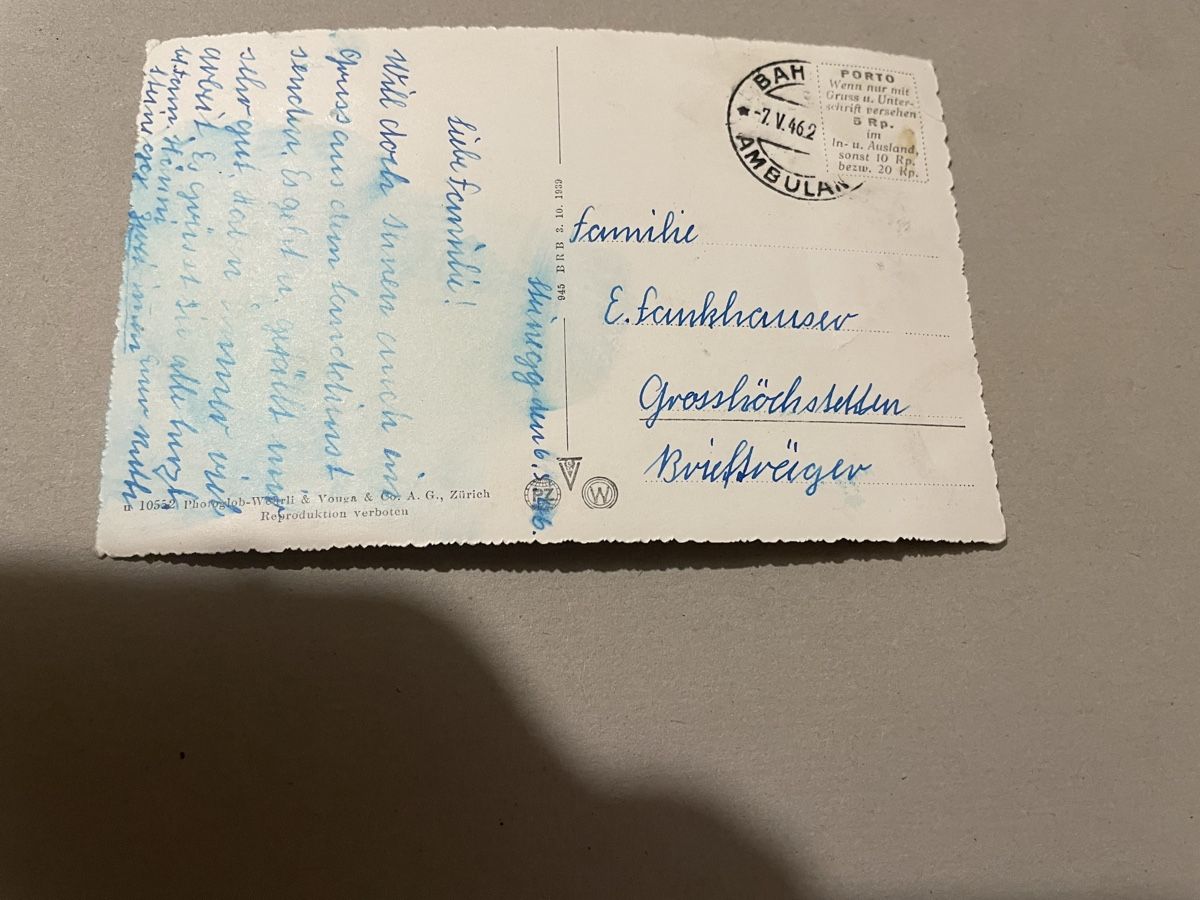 Steinegg den 6.5.46.
Liebe Familie!
Will doch Ihnen auch ein
Gruss aus dem Landdienst
senden. Es geht u. gefällt mir
sehr gut. Haben immer viel
arbeit. Es grüsst Sie alle herzl.
BAH
* -7.V.46.2
AMBULAN
PORTO
Wenn nur mit
Gruss u. Unter-
schrift versehen
5 Rp.
im
In- u. Ausland,
sonst 10 Rp.
bezw. 20 Rp.
Familie
E. Fankhauser
Grosshöchstetten
Briefträger
945 BRB 3. 10. 1939
PZ
W
u 10552 Photoglob-Wehrli & Vouga & Co. A. G., Zürich
Reproduktion verboten